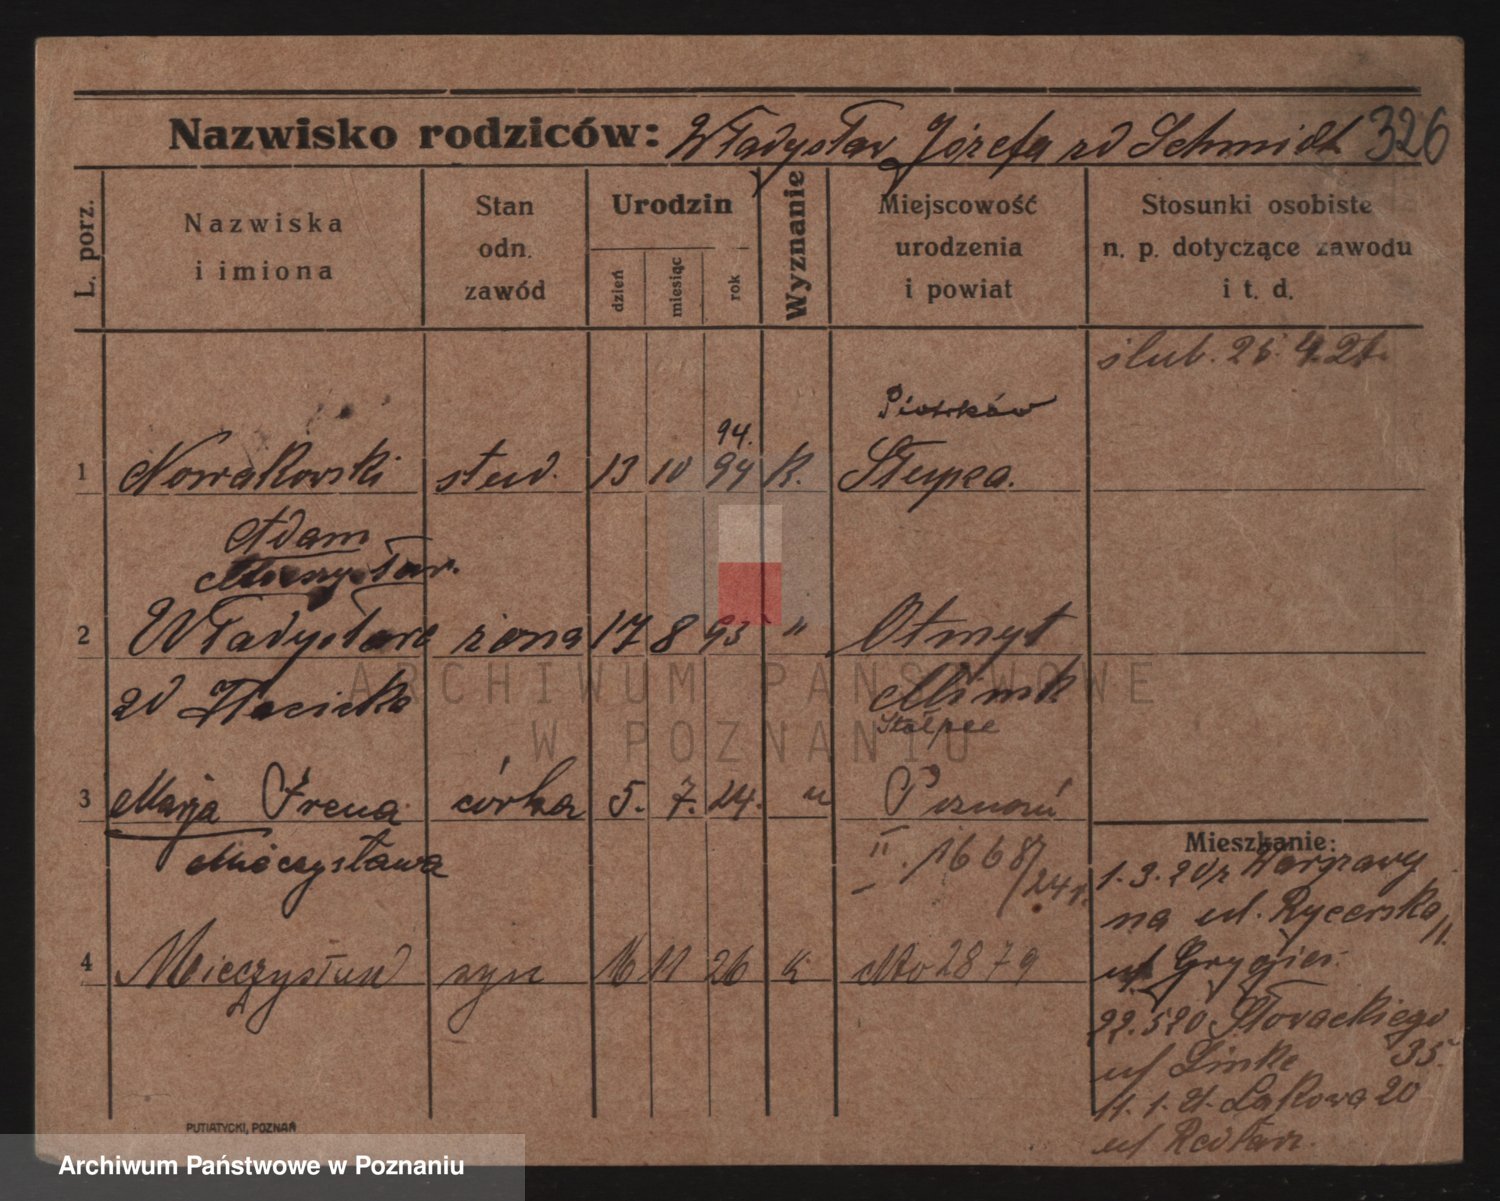 Nazwisko rodziców: Władysław Józefa zd Schmidt 326
L. porz.
Nazwiska
i imiona
Stan
odn.
zawód
Urodzin
dzień
miesiąc
rok
Wyznanie
Miejscowość
urodzenia
i powiat
Stosunki osobiste
n. p. dotyczące zawodu
i t. d.
ślub. 25. 4. 21.
Piotrków
94.
1 Nowakowski stud. 13 10 94 k. Słupca.
Adam
Mieczysław.
2 Władysława żona 17 8 93 " Otmyt
zd
Słupce
3 Marja Irena córka 5. 7. 24. " Poznań
Mieczysława
II. 1668/24r.
4 Mieczysław syn 16 11 26 k dto 2879
Mieszkanie:
1. 3. 20 z Warszawy
na ul. Rycerska 11.
22.5 20 Słowackiego
u/ Linke 35.
11. 1. 21. Łąkowa 20
u/
PUTIATYCKI, POZNAŃ
ARCHIWUM PAŃSTWOWE
W POZNANIU
Archiwum Państwowe w Poznaniu